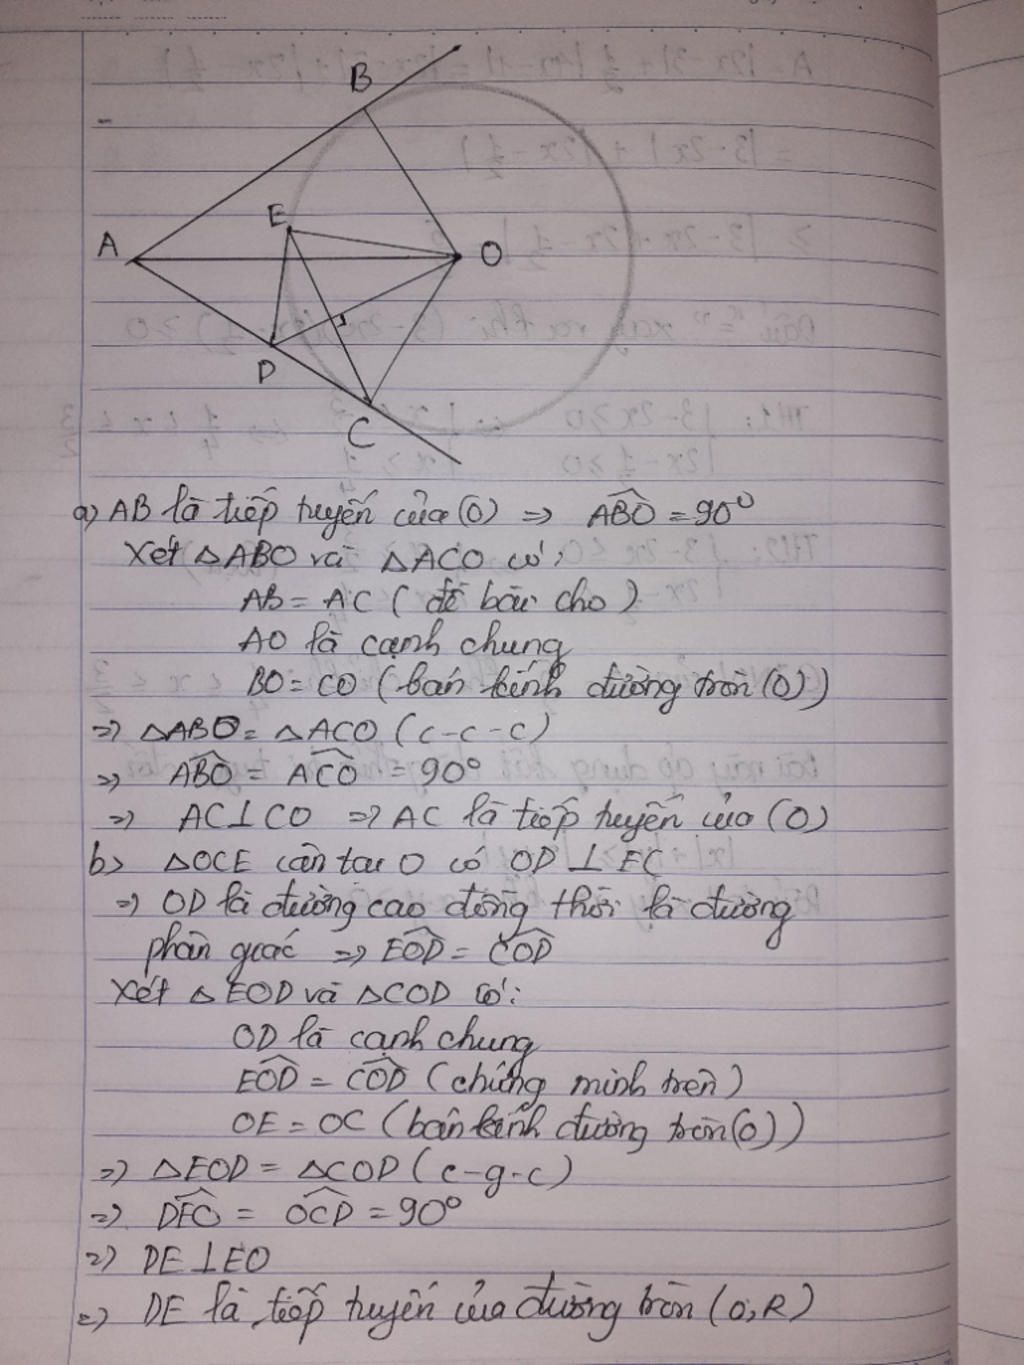 B
E
A
O
D
C
a) AB là tiếp tuyến của (O) => ABO = 90°
Xét △ABO và △ACO có:
AB = AC (đề bài cho)
AO là cạnh chung
BO = CO (bán kính đường tròn (O))
=> △ABO = △ACO (c-c-c)
=> ABO = ACO = 90°
=> AC⊥CO => AC là tiếp tuyến của (O)
b) △OCE cân tại O có OD ⊥ EC
=> OD là đường cao đồng thời là đường
phân giác => EOD = COD
Xét △EOD và △COD có:
OD là cạnh chung
EOD = COD (chứng minh trên)
OE = OC (bán kính đường tròn (O))
=> △EOD = △COD (c-g-c)
=> DEO = OCD = 90°
=> DE ⊥ EO
=> DE là tiếp tuyến của đường tròn (O,R)